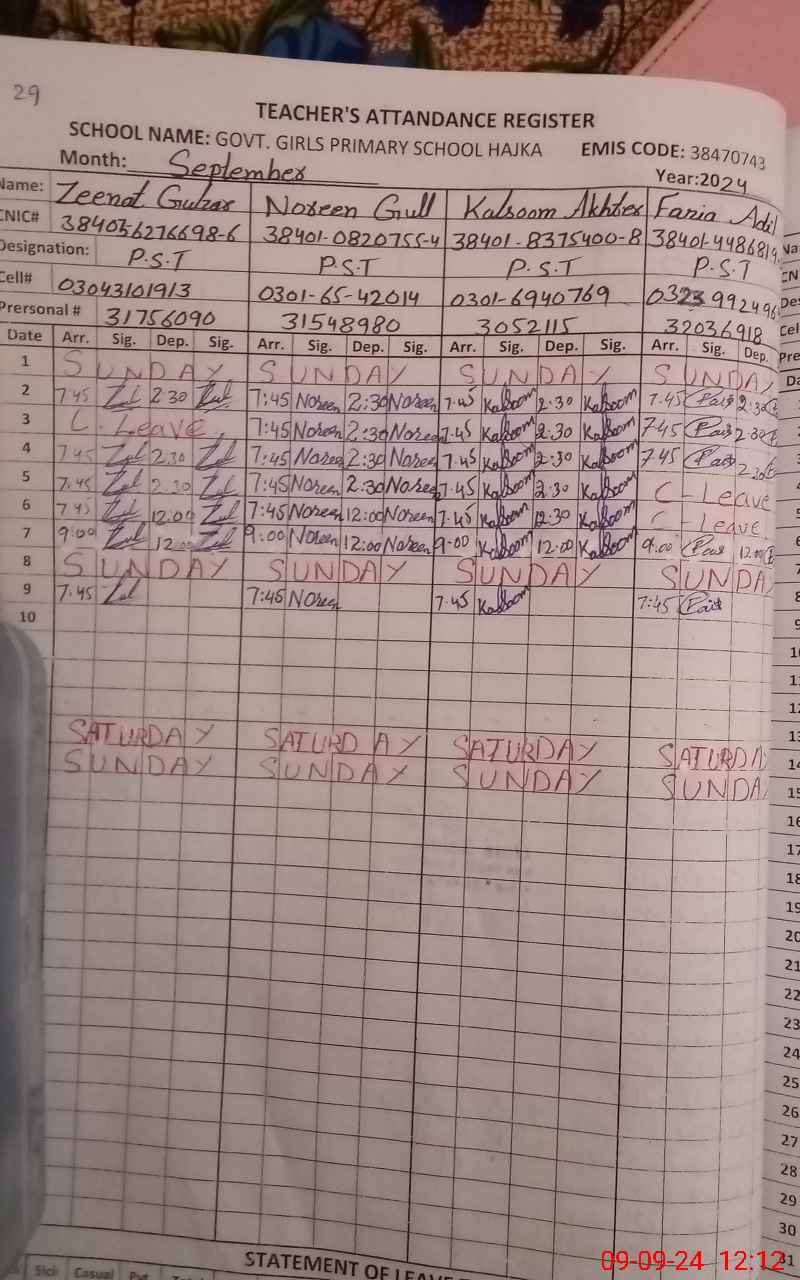 29
TEACHER'S ATTANDANCE REGISTER
SCHOOL NAME: GOVT. GIRLS PRIMARY SCHOOL HAJKA EMIS CODE: 38470743
Month: September Year:2024
Name: Zeenat Gulzar Noreen Gull Kalsoom Akhter Fazia Adil
CNIC# 38401-0820755-4 38401-8375400-8 38401-4486819
Designation: P.S.T P.S.T P.S.T P.S.T
Cell# 03043101913 0301-65-42014 0301-6940769 0323992496
Prersonal # 31756090 31548980 3052115 32036918
Date Arr. Sig. Dep. Sig. Arr. Sig. Dep. Sig. Arr. Sig. Dep. Sig. Arr. Sig. Dep.
1 SUNDAY SUNDAY SUNDAY SUNDAY
2 7.45 2.30 7:45 Noreen 2:30 Noreen 7.45 Kalsoom 2.30 Kalsoom 7.45 2:30
3 C. Leave 7:45 Noreen 2:30 Noreen 7.45 Kalsoom 2.30 Kalsoom 7.45 2.30
4 7.45 2.30 7:45 Noreen 2:30 Noreen 7.45 Kalsoom 2.30 Kalsoom 7.45 2.30
5 7.45 2.30 7:45 Noreen 2:30 Noreen 7.45 Kalsoom 2.30 Kalsoom C-Leave
6 7.45 12.00 7:45 Noreen 12:00 Noreen 7.45 Kalsoom 12.30 Kalsoom C-Leave
7 9:00 12:00 9:00 Noreen 12:00 Noreen 9.00 Kalsoom 12.00 Kalsoom 9.00 12.00
8 SUNDAY SUNDAY SUNDAY SUNDAY
9 7.45 7:45 Noreen 7.45 Kalsoom 7:45
10
SATURDAY SATURDAY SATURDAY SATURDA
SUNDAY SUNDAY SUNDAY SUNDA
STATEMENT OF LEAVE
Sick Casual Pvt
Na
CN
Des
Cel
Pre
Da
1
2
3
4
5
6
7
8
9
10
11
12
13
14
15
16
17
18
19
20
21
22
23
24
25
26
27
28
29
30
31
09-09-24 12:12